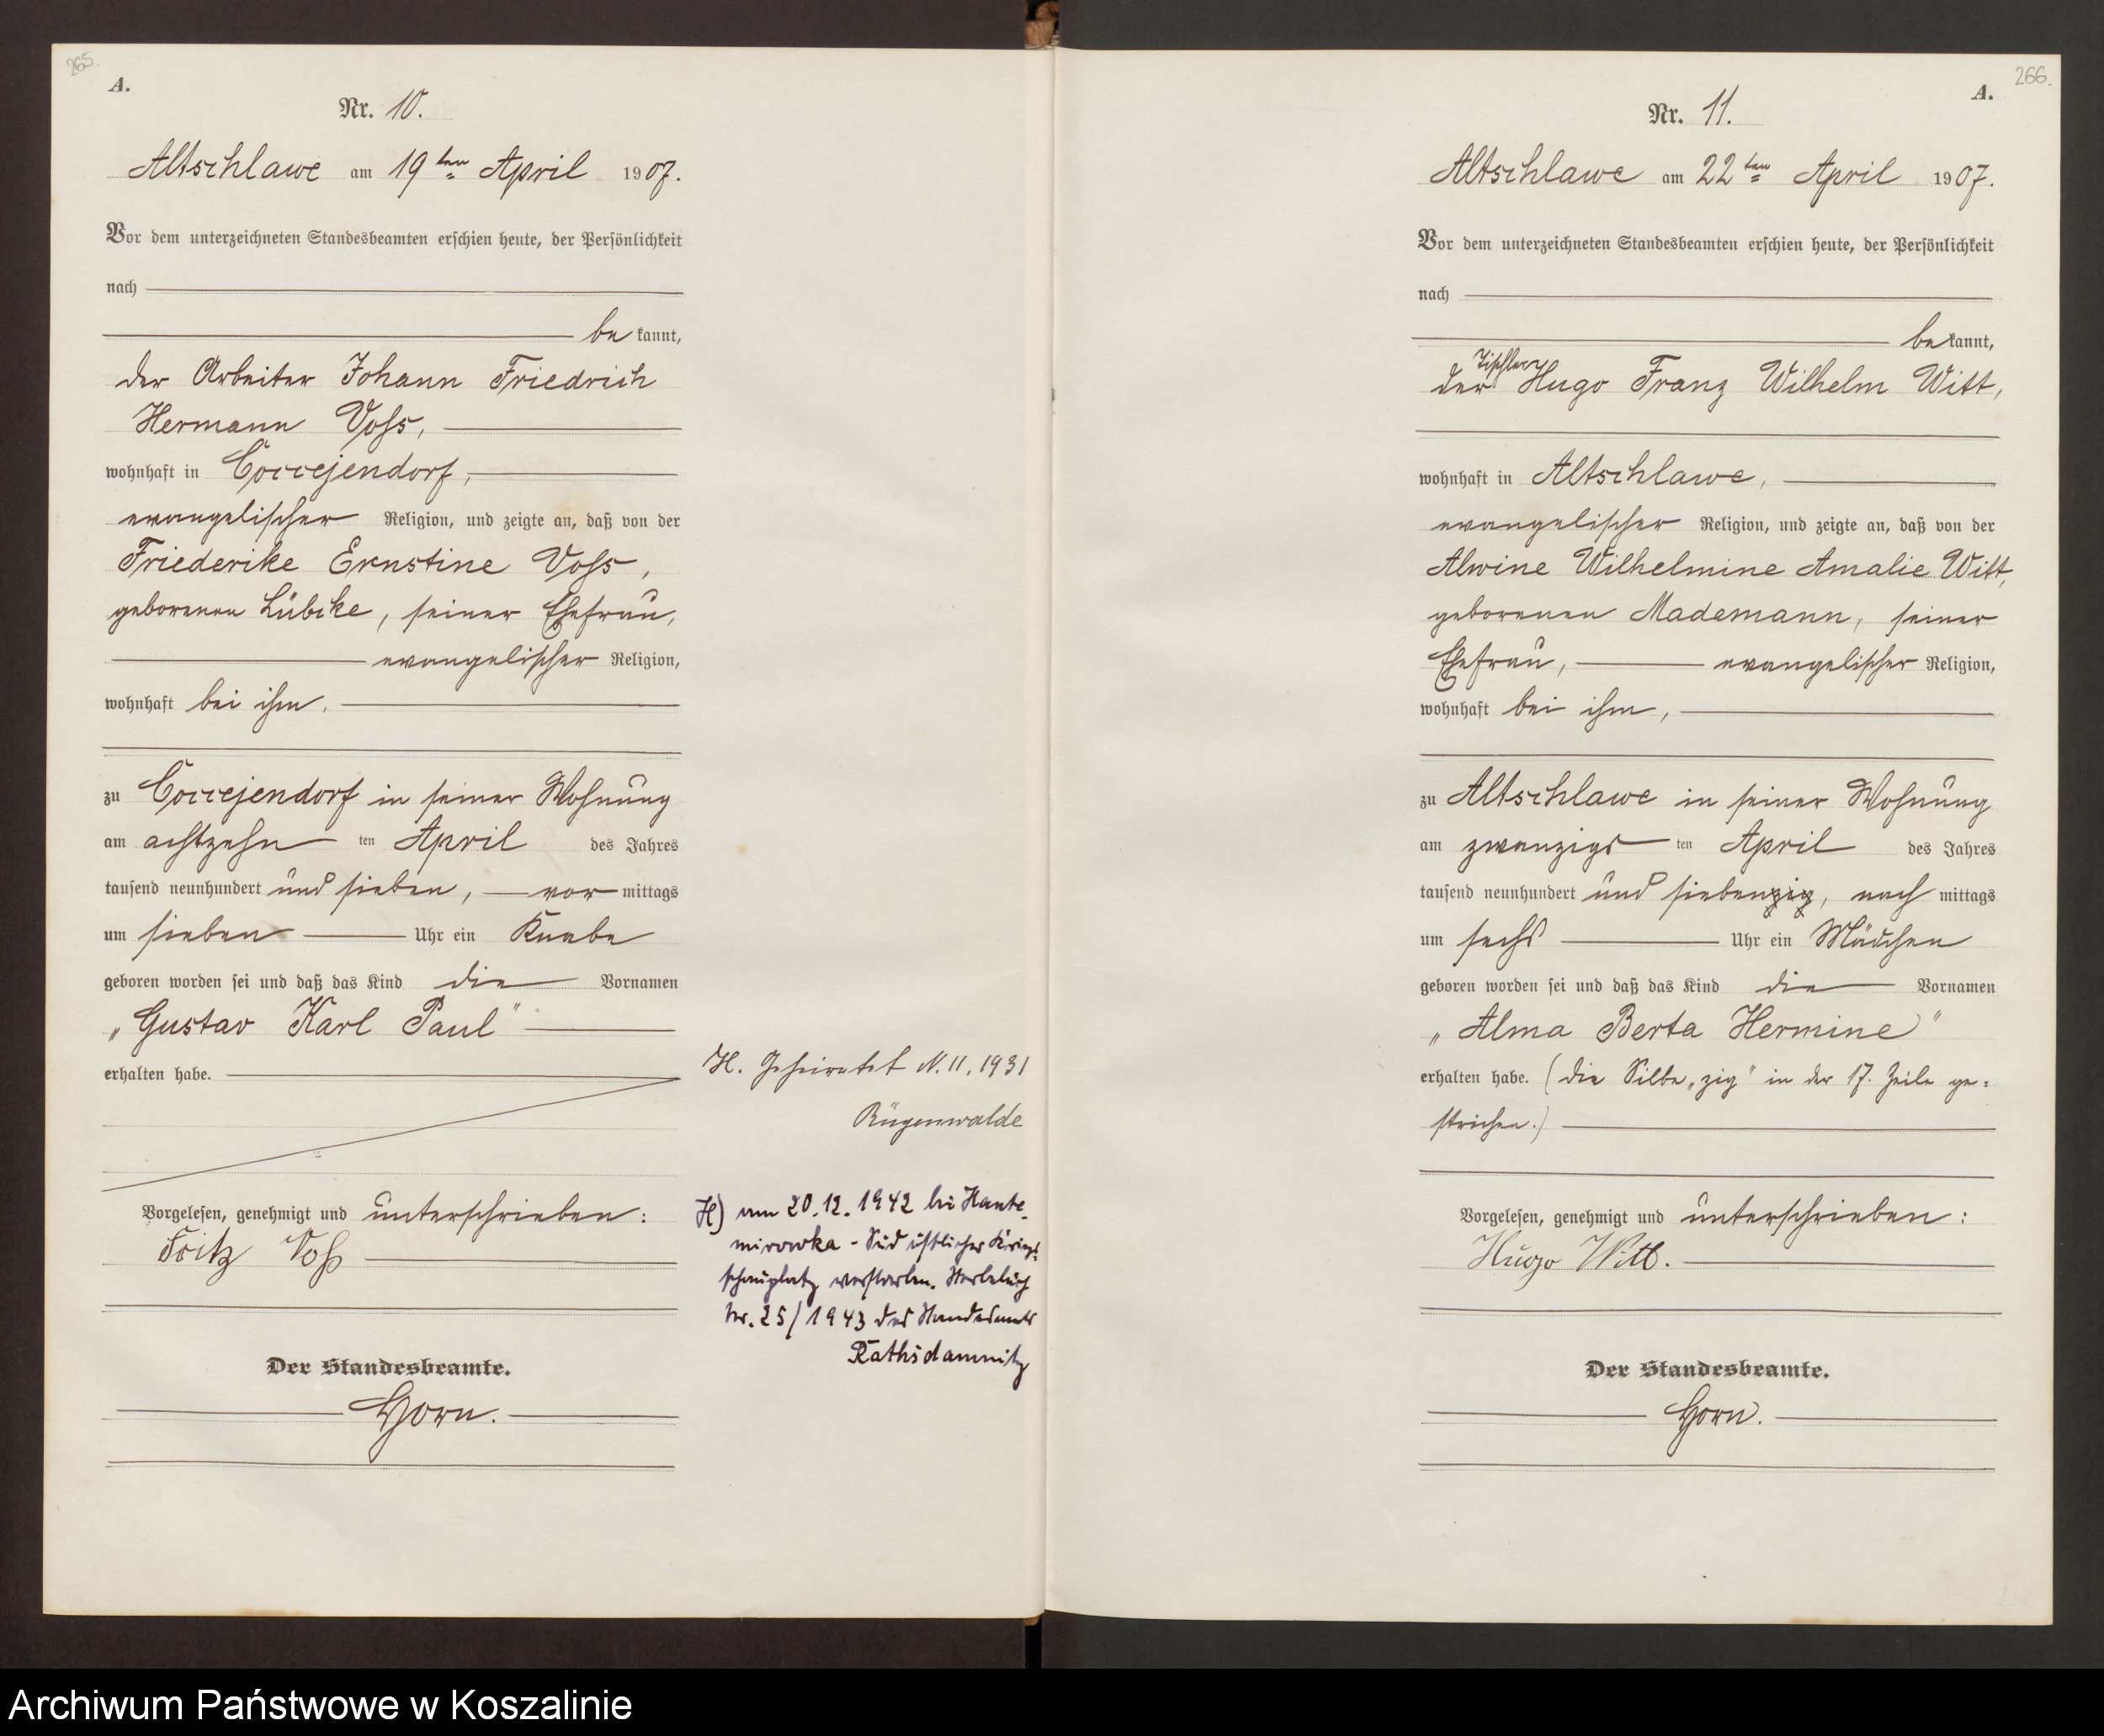 265.
A.
Nr. 10.
Altschlawe am 19ten April 1907.
Vor dem unterzeichneten Standesbeamten erschien heute, der Persönlichkeit
nach
bekannt,
der Arbeiter Johann Friedrich
Hermann Voß,
wohnhaft in Coccejendorf,
evangelischer Religion, und zeigte an, daß von der
Friederike Ernstine Voß,
geborenen Lübcke, seiner Ehefrau,
evangelischer Religion,
wohnhaft bei ihm,
zu Coccejendorf in seiner Wohnung
am achtzehn ten April des Jahres
tausend neunhundert und sieben, vor mittags
um sieben Uhr ein Knabe
geboren worden sei und daß das Kind die Vornamen
„Gustav Karl Paul"
erhalten habe.
Vorgelesen, genehmigt und unterschrieben:
Fritz Voß
Der Standesbeamte.
Horn.
H. Geheiratet N. 11. 1931
Rügenwalde
H) am 20.12.1942 bei Kante-
mirowka - Südöstlicher Kriegs-
schauplatz verstorben. Sterbebuch
Nr. 25/1943 des Standesamts
Rathsdamnitz
266.
A.
Nr. 11.
Altschlawe am 22ten April 1907.
Vor dem unterzeichneten Standesbeamten erschien heute, der Persönlichkeit
nach
bekannt,
der Tischler Hugo Franz Wilhelm Witt,
wohnhaft in Altschlawe,
evangelischer Religion, und zeigte an, daß von der
Alwine Wilhelmine Amalie Witt,
geborenen Mademann, seiner
Ehefrau, evangelischer Religion,
wohnhaft bei ihm,
zu Altschlawe in seiner Wohnung
am zwanzigs ten April des Jahres
tausend neunhundert und siebenzig, nach mittags
um sechs Uhr ein Mädchen
geboren worden sei und daß das Kind die Vornamen
„Alma Berta Hermine"
erhalten habe. (Die Silbe „zig" in der 17. Zeile ge-
strichen.)
Vorgelesen, genehmigt und unterschrieben:
Hugo Witt.
Der Standesbeamte.
Horn.
Archiwum Państwowe w Koszalinie